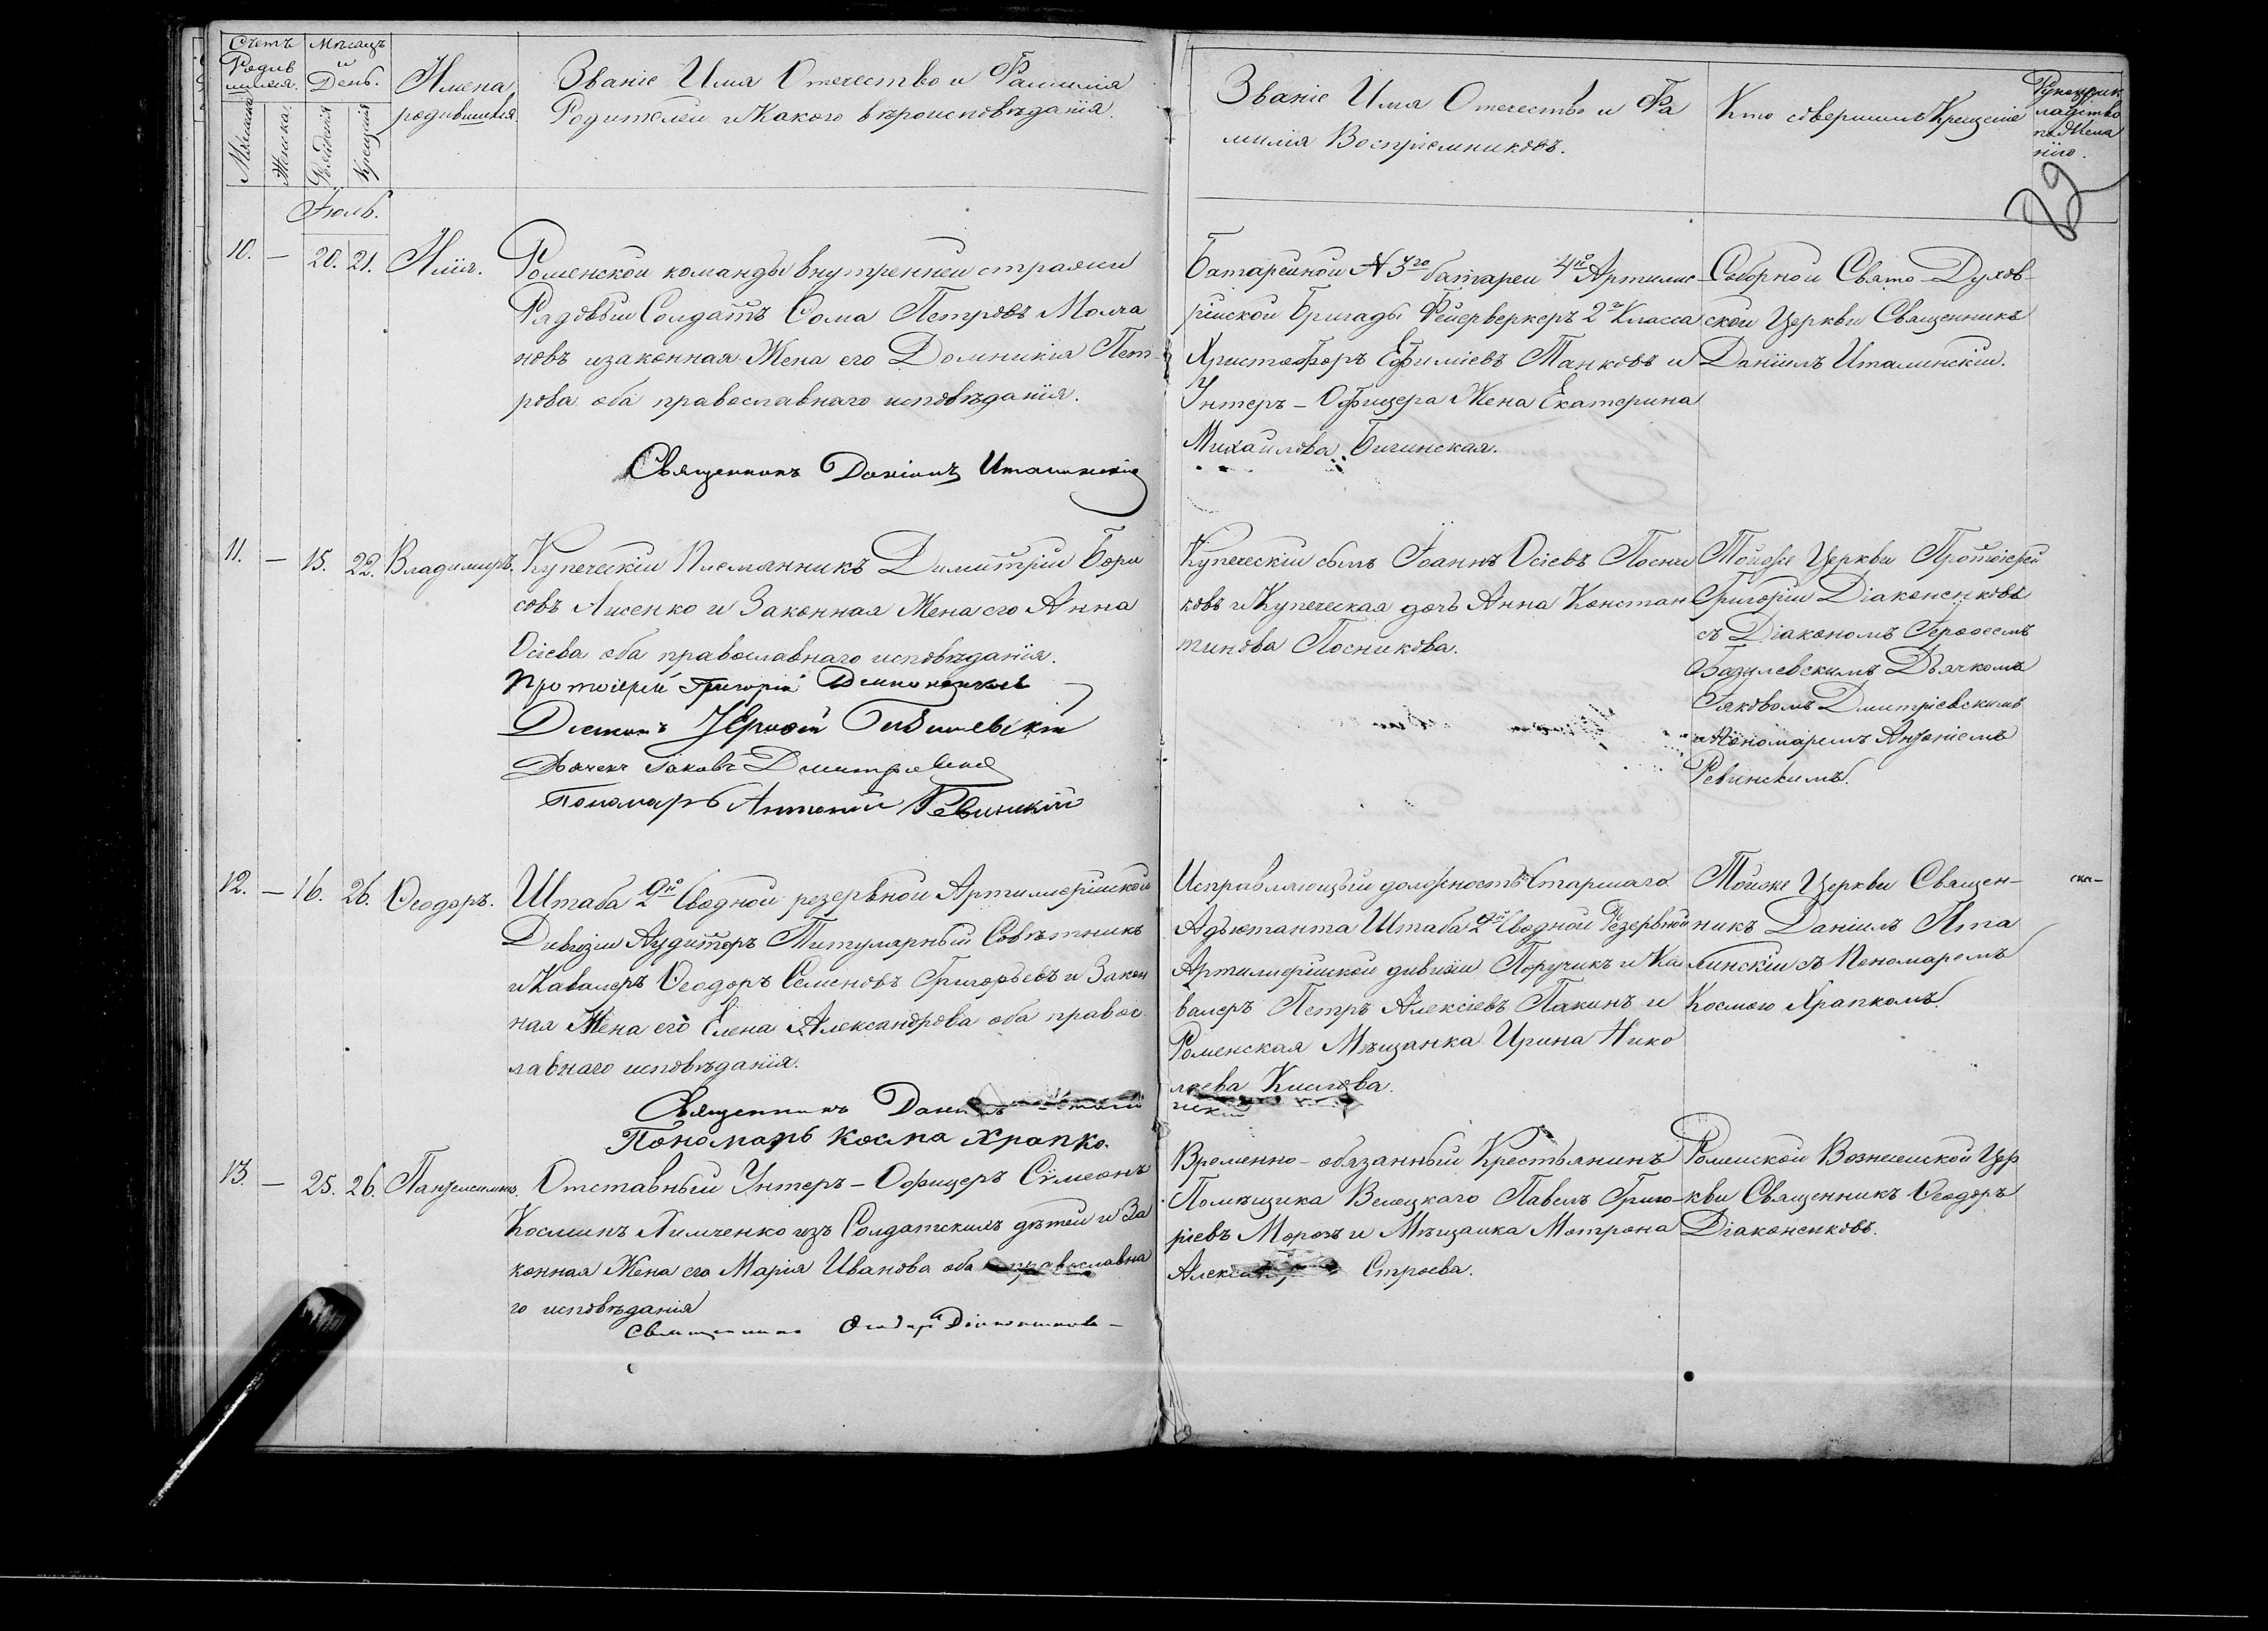 Счетъ
Родив
шихся.
Мѣсяцъ
и
День.
Мужеска
Женска.
Рожденія
Крещенія
Имена
родившихся
Званіе Имя Отечество и Фамилія
Родителей и Какого вѣроисповѣданія.
Званіе Имя Отечество и Фа
милія Воспріемниковъ.
Кто совершилъ Крещеніе
Рукоприк
ладство
по Жела
нію.
29
Іюль.
10. — 20. 21. Илія.
Роменской команды внутренней стражи
Рядовый Солдатъ Ѳома Петровъ Молча
новъ и законная Жена его Домникія Пет-
рова оба православнаго исповѣданія.
Священникъ Даніилъ Италинскій
Батарейной № 3го батареи 4й Артилле-
рійской Бригады Фейерверкеръ 2го Класса
Христофоръ Ефиміевъ Танковъ и
Унтеръ-Офицера Жена Екатерина
Михайлова Бигинская.
Соборной Свято-Духов-
ской Церкви Священникъ
Даніилъ Италинскій.
11. — 15. 22. Владимиръ.
Купеческій Племянникъ Димитрій Бори
совъ Лисенко и Законная Жена его Анна
Осіева оба православнаго исповѣданія.
Протоіерей Григорій Діаконенковъ
Діаконъ Іероѳей Базилевскій
Дьячекъ Іаковъ Дмитріевскій
Пономарь Антоній Ревинскій
Купеческій сынъ Іоаннъ Осіевъ Посни
ковъ и Купеческая дочь Анна Констан
тинова Посникова.
Тойже Церкви Протоіерей
Григорій Діаконенковъ
съ Діакономъ Іероѳеемъ
Базилевскимъ Дьячкомъ
Іаковомъ Дмитріевскимъ
и Пономаремъ Антоніемъ
Ревинскимъ.
12. — 16. 26. Ѳеодоръ.
Штаба 2й Сводной резервной Артиллерійской
Дивизіи Аудиторъ Титулярный Совѣтникъ
и Кавалеръ Ѳеодоръ Семеновъ Григорьевъ и Закон
ная Жена его Елена Александрова оба правос
лавнаго исповѣданія.
Священникъ Даніилъ
Пономарь Косма Храпко.
Исправляющій должность Старшаго
Адъютанта Штаба 2й Сводной Резервной
Артиллерійской дивизіи Поручикъ и Ка
валеръ Петръ Алексіевъ Пакинъ и
Роменская Мѣщанка Ирина Нико
лаева
Тойже Церкви Священ-
никъ Даніилъ Ита
линскій съ Пономаремъ
Космою Храпкомъ.
13. — 25. 26. Пантелеимонъ.
Отставный Унтеръ-Офицеръ Сѵмеонъ
Косминъ Химченко изъ Солдатскихъ дѣтей и За
конная Жена его Марія Иванова оба православна
го исповѣданія
Священникъ Ѳеодоръ Діаконенковъ
Временно-обязанный Крестьянинъ
Помѣщика Велецкаго Павелъ Григо-
ріевъ Морозъ и Мѣщанка Матрона
Строева.
Роменской Вознесенской Цер
кви Священникъ Ѳеодоръ
Діаконенковъ.